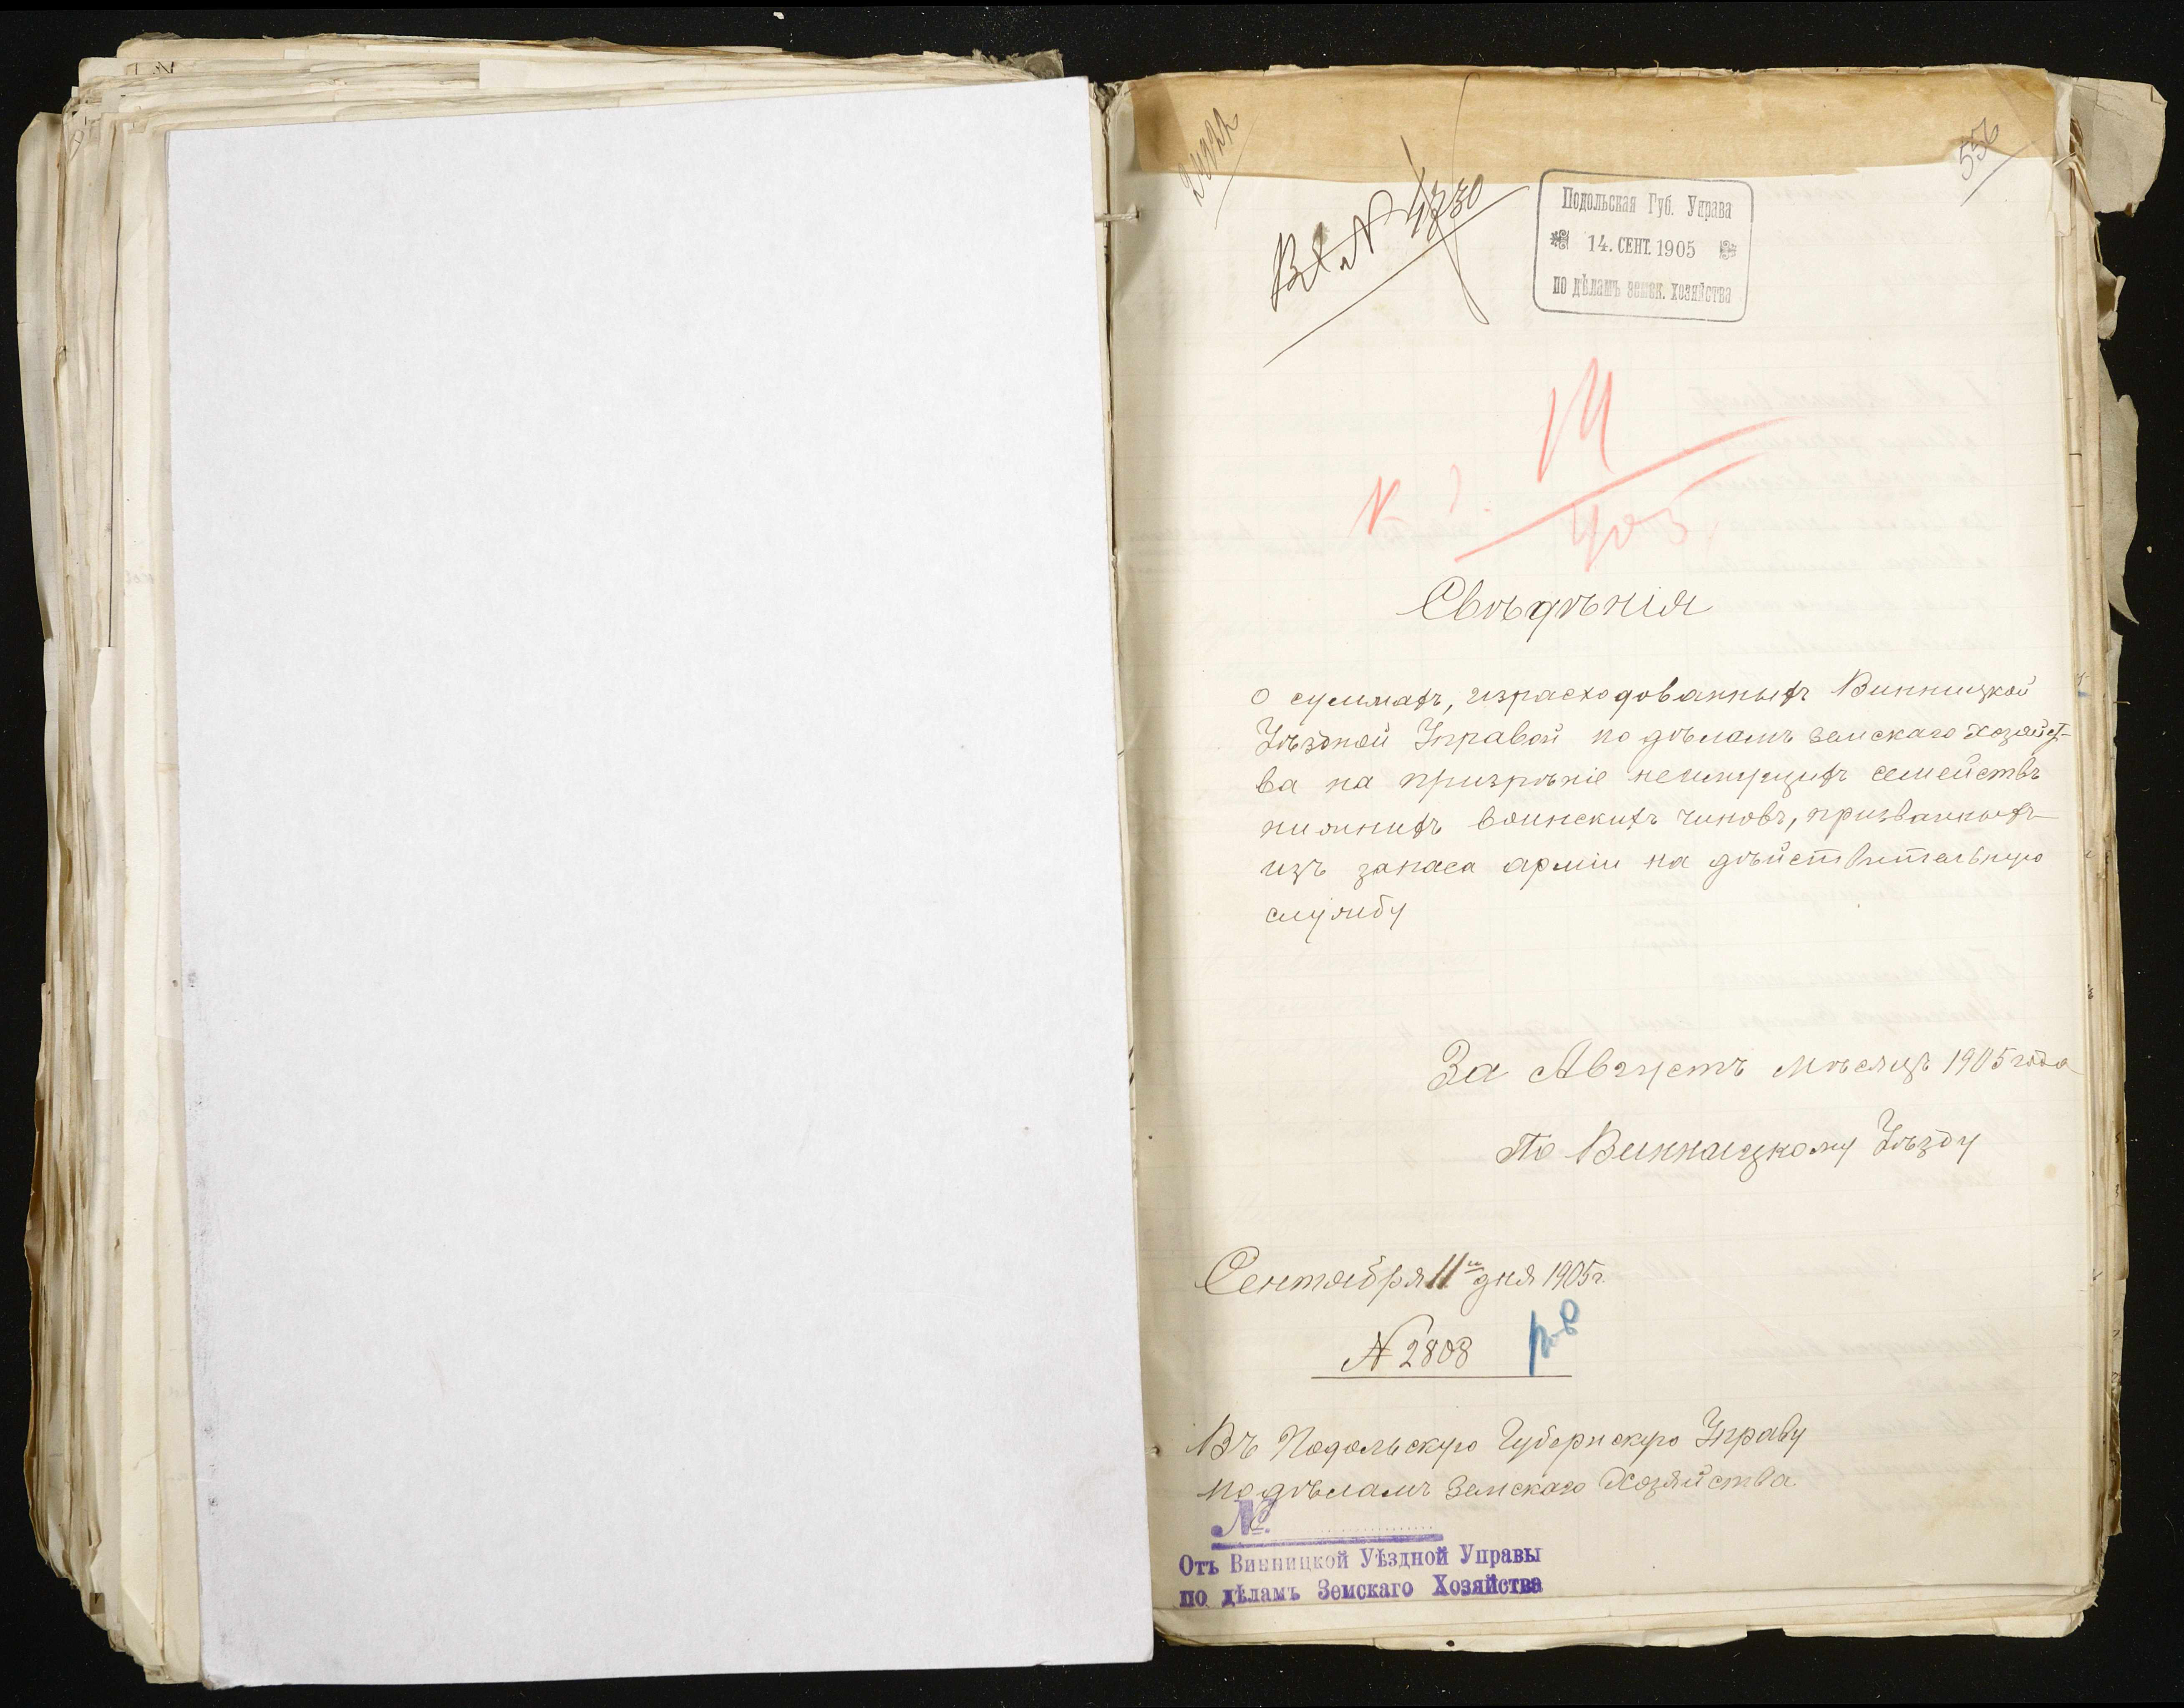 556
Вх. № 4730
Подольская Губ. Управа
14. СЕНТ. 1905
по дѣламъ земск. хозяйства
Свѣдѣнія
о суммахъ, израсходованныхъ Винницкой
Уѣздной Управой по дѣламъ Земскаго Хозяйст-
ва на призрѣніе неимущихъ семействъ
нижнихъ воинскихъ чиновъ, призванныхъ
изъ запаса арміи на дѣйствительную
службу
За Августъ мѣсяцъ 1905 года
По Винницкому Уѣзду
Сентября 11 дня 1905 г.
№ 2808
Въ Подольскую Губернскую Управу
по дѣламъ Земскаго Хозяйства
№.
Отъ Винницкой Уѣздной Управы
по дѣламъ Земскаго Хозяйства